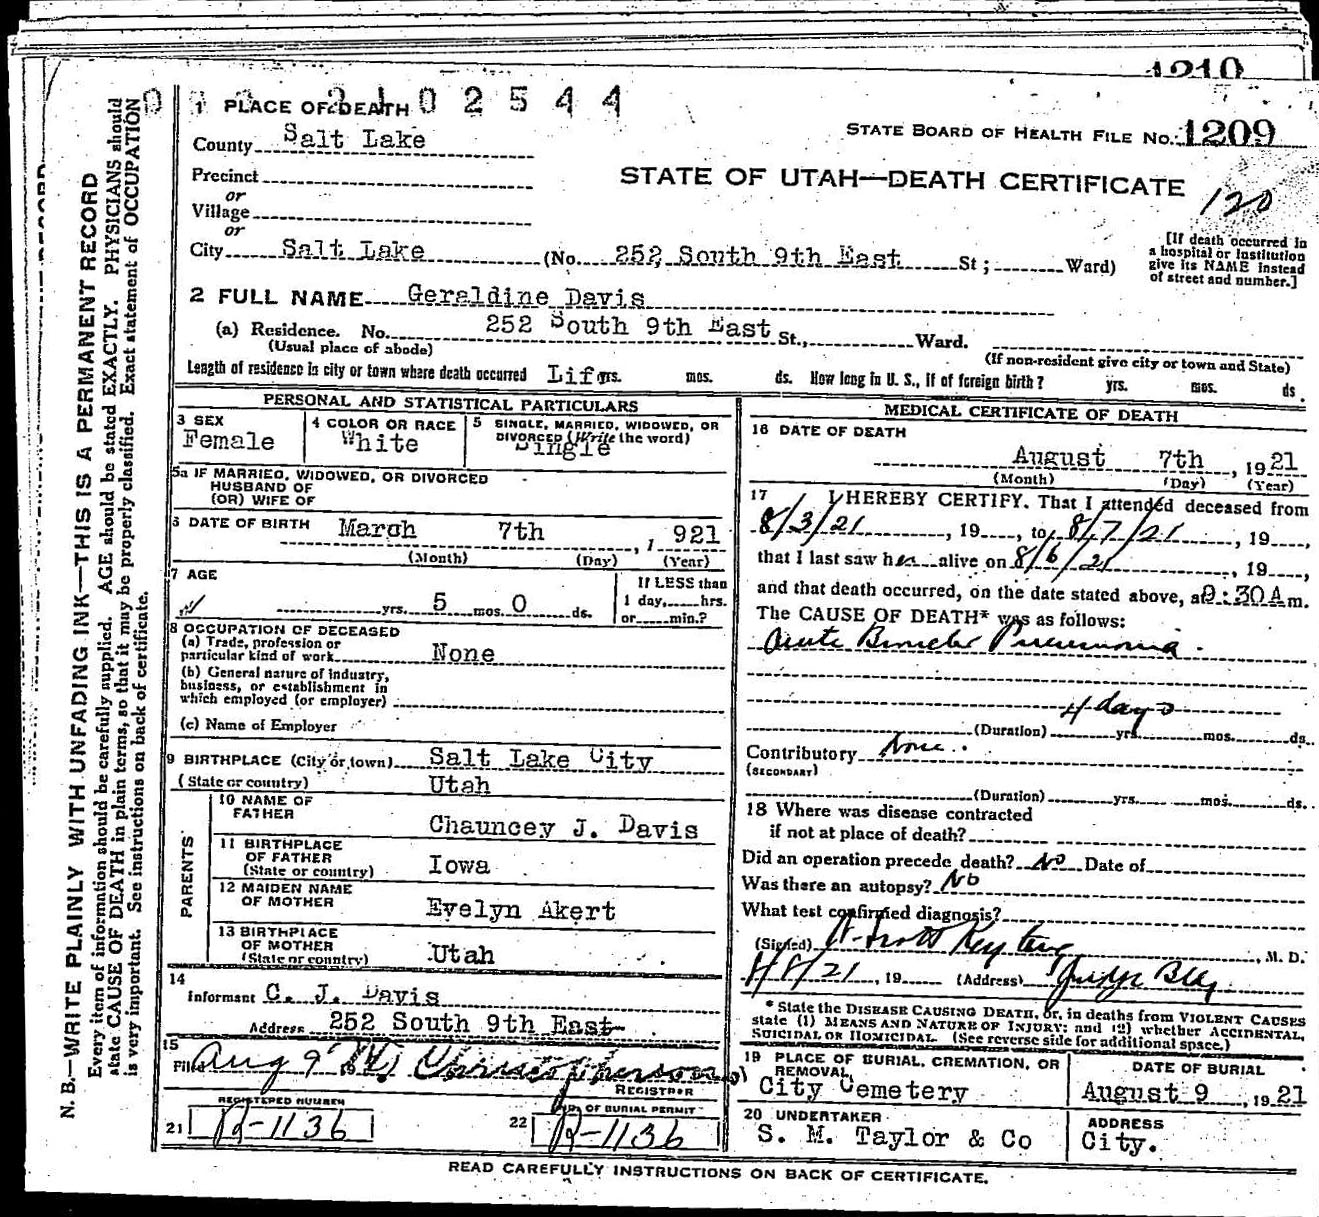 1210
2102544
STATE BOARD OF HEALTH FILE No. 1209
STATE OF UTAH—DEATH CERTIFICATE
120
1 PLACE OF DEATH
County Salt Lake
Precinct
or
Village
or
City Salt Lake (No. 252 South 9th East St ; Ward)
[If death occurred in
a hospital or institution
give its NAME instead
of street and number.]
2 FULL NAME Geraldine Davis
(a) Residence. No. 252 South 9th East St., Ward.
(Usual place of abode) (If non-resident give city or town and State)
Length of residence in city or town where death occurred Life yrs. mos. ds. How long in U. S., if of foreign birth? yrs. mos. ds.
PERSONAL AND STATISTICAL PARTICULARS
3 SEX
Female
4 COLOR OR RACE
White
5 SINGLE, MARRIED, WIDOWED, OR
DIVORCED (Write the word)
Single
5a IF MARRIED, WIDOWED, OR DIVORCED
HUSBAND OF
(OR) WIFE OF
6 DATE OF BIRTH March 7th , 1921
(Month) (Day) (Year)
7 AGE
yrs. 5 mos. 0 ds.
If LESS than
1 day, hrs.
or min.?
8 OCCUPATION OF DECEASED
(a) Trade, profession or
particular kind of work None
(b) General nature of industry,
business, or establishment in
which employed (or employer)
(c) Name of Employer
9 BIRTHPLACE (City or town) Salt Lake City
(State or country) Utah
PARENTS
10 NAME OF
FATHER Chauncey J. Davis
11 BIRTHPLACE
OF FATHER
(State or country) Iowa
12 MAIDEN NAME
OF MOTHER Evelyn Akert
13 BIRTHPLACE
OF MOTHER
(State or country) Utah
14
Informant C. J. Davis
Address 252 South 9th East
15
Filed Aug 9
REGISTRAR
REGISTERED NUMBER
21 R-1136
NO. OF BURIAL PERMIT
22 R-1136
MEDICAL CERTIFICATE OF DEATH
16 DATE OF DEATH
August 7th , 1921
(Month) (Day) (Year)
17 I HEREBY CERTIFY. That I attended deceased from
8/3/21 , 19 , to 8/7/21 , 19 ,
that I last saw her alive on 8/6/21 , 19 ,
and that death occurred, on the date stated above, at 9:30 A m.
The CAUSE OF DEATH* was as follows:
Acute Broncho Pneumonia.
4 days
(Duration) yrs. mos. ds.
Contributory None.
(SECONDARY)
(Duration) yrs. mos. ds.
18 Where was disease contracted
if not at place of death?
Did an operation precede death? No Date of
Was there an autopsy? No
What test confirmed diagnosis?
(Signed) , M. D.
/21 , 19 (Address) Judge Bldg
* State the DISEASE CAUSING DEATH, or, in deaths from VIOLENT CAUSES
state (1) MEANS AND NATURE OF INJURY; and (2) whether ACCIDENTAL,
SUICIDAL OR HOMICIDAL. (See reverse side for additional space.)
19 PLACE OF BURIAL, CREMATION, OR
REMOVAL
City Cemetery
DATE OF BURIAL
August 9 , 1921
20 UNDERTAKER
S. M. Taylor & Co
ADDRESS
City.
READ CAREFULLY INSTRUCTIONS ON BACK OF CERTIFICATE.
N. B.—WRITE PLAINLY WITH UNFADING INK—THIS IS A PERMANENT RECORD
Every item of information should be carefully supplied. AGE should be stated EXACTLY. PHYSICIANS should
state CAUSE OF DEATH in plain terms, so that it may be properly classified. Exact statement of OCCUPATION
is very important. See instructions on back of certificate.